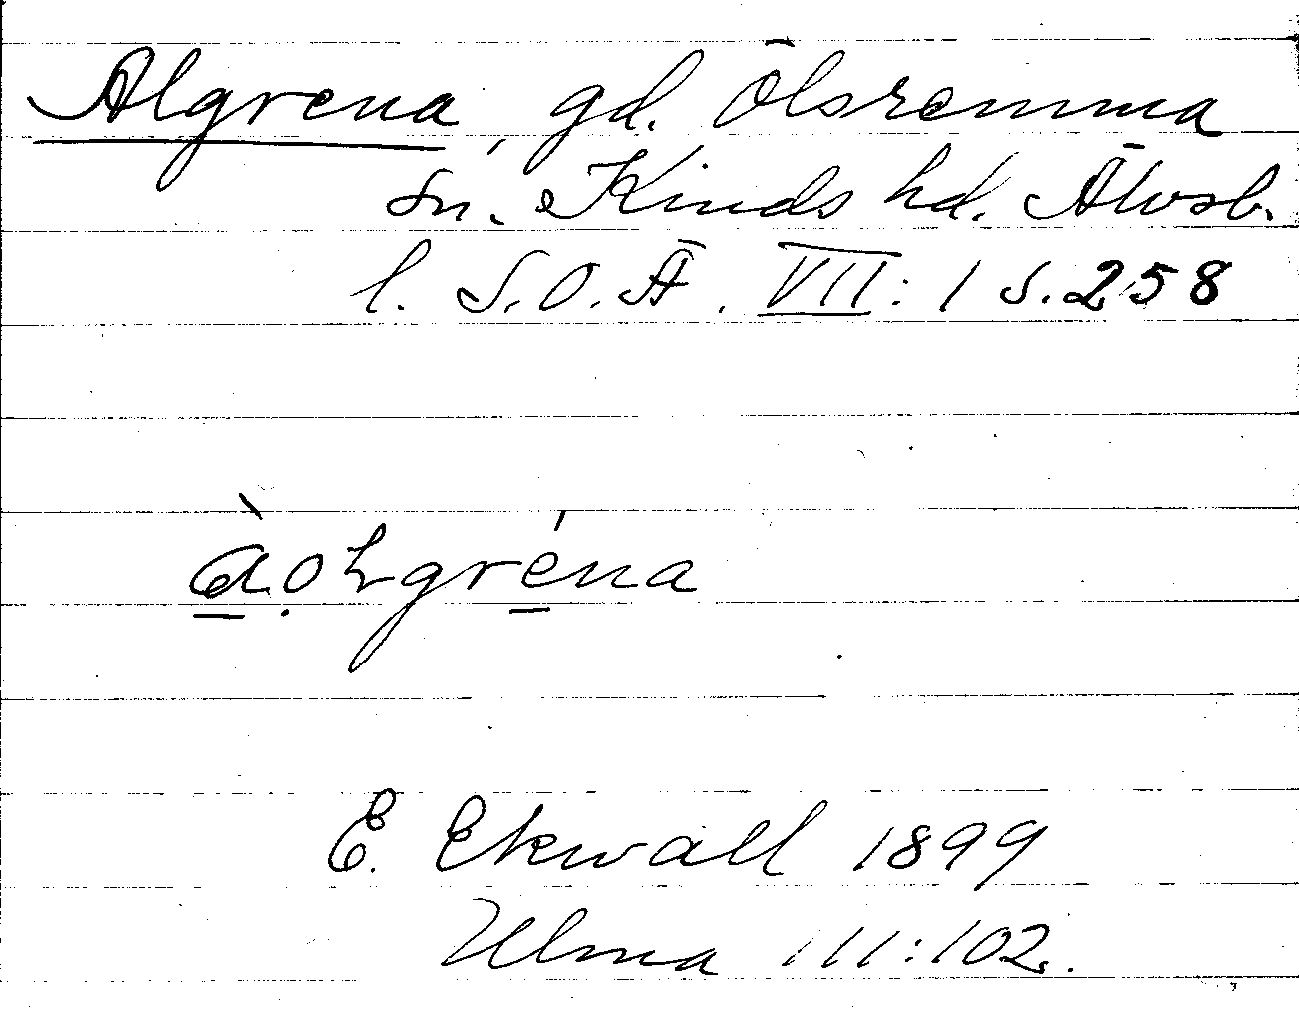 Algrena, gd. Ölsremma
sn. Kinds hd. Älvsb.
l. S.O.Ä. VII:1 s.258
E. Ekwall 1899
Ulma 111:102.